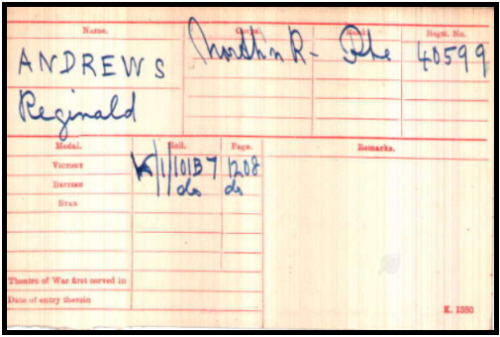 Name. Corps. Rank. Regtl. No.
ANDREWS North'n R - Pte 40599
Reginald
Medal. Roll. Page. Remarks.
Victory 1/101B7 1208
British do do
Star
Theatre of War first served in
Date of entry therein
K. 1380